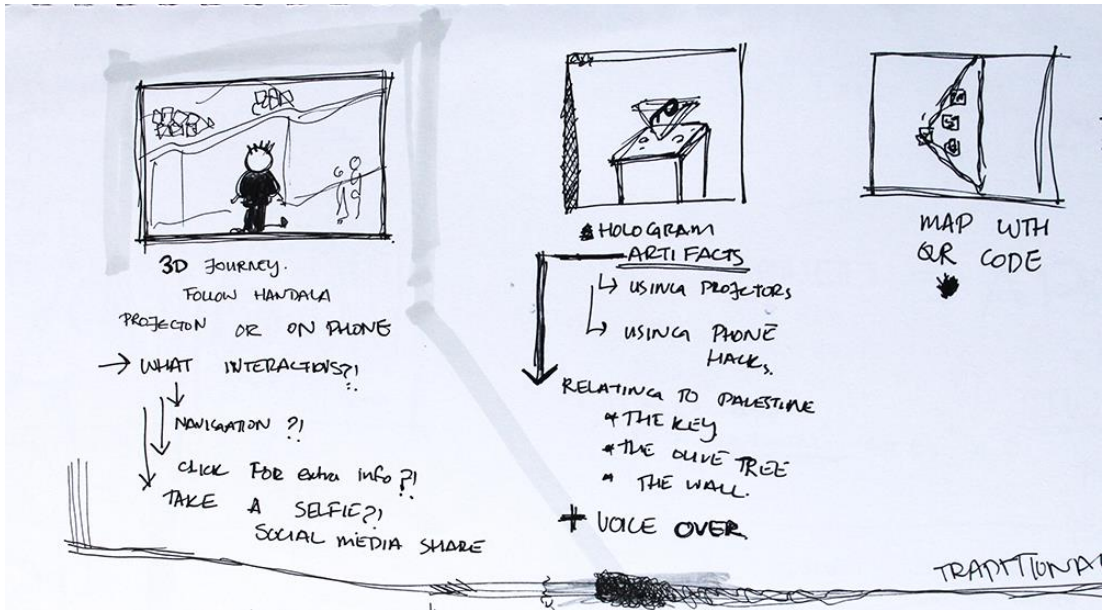 3D JOURNEY.
FOLLOW HANDALA
PROJECTION OR ON PHONE
→ WHAT INTERACTIONS?!
NAVIGATION ?!
CLICK FOR extra info?!
TAKE A SELFIE?!
SOCIAL MEDIA SHARE
HOLOGRAM
ARTIFACTS
USING PROJECTORS
USING PHONE
HACKS.
RELATING TO PALESTINE
* THE KEY
* THE OLIVE TREE
* THE WALL.
+ VOICE OVER
MAP WITH
QR CODE
TRADITIONAL